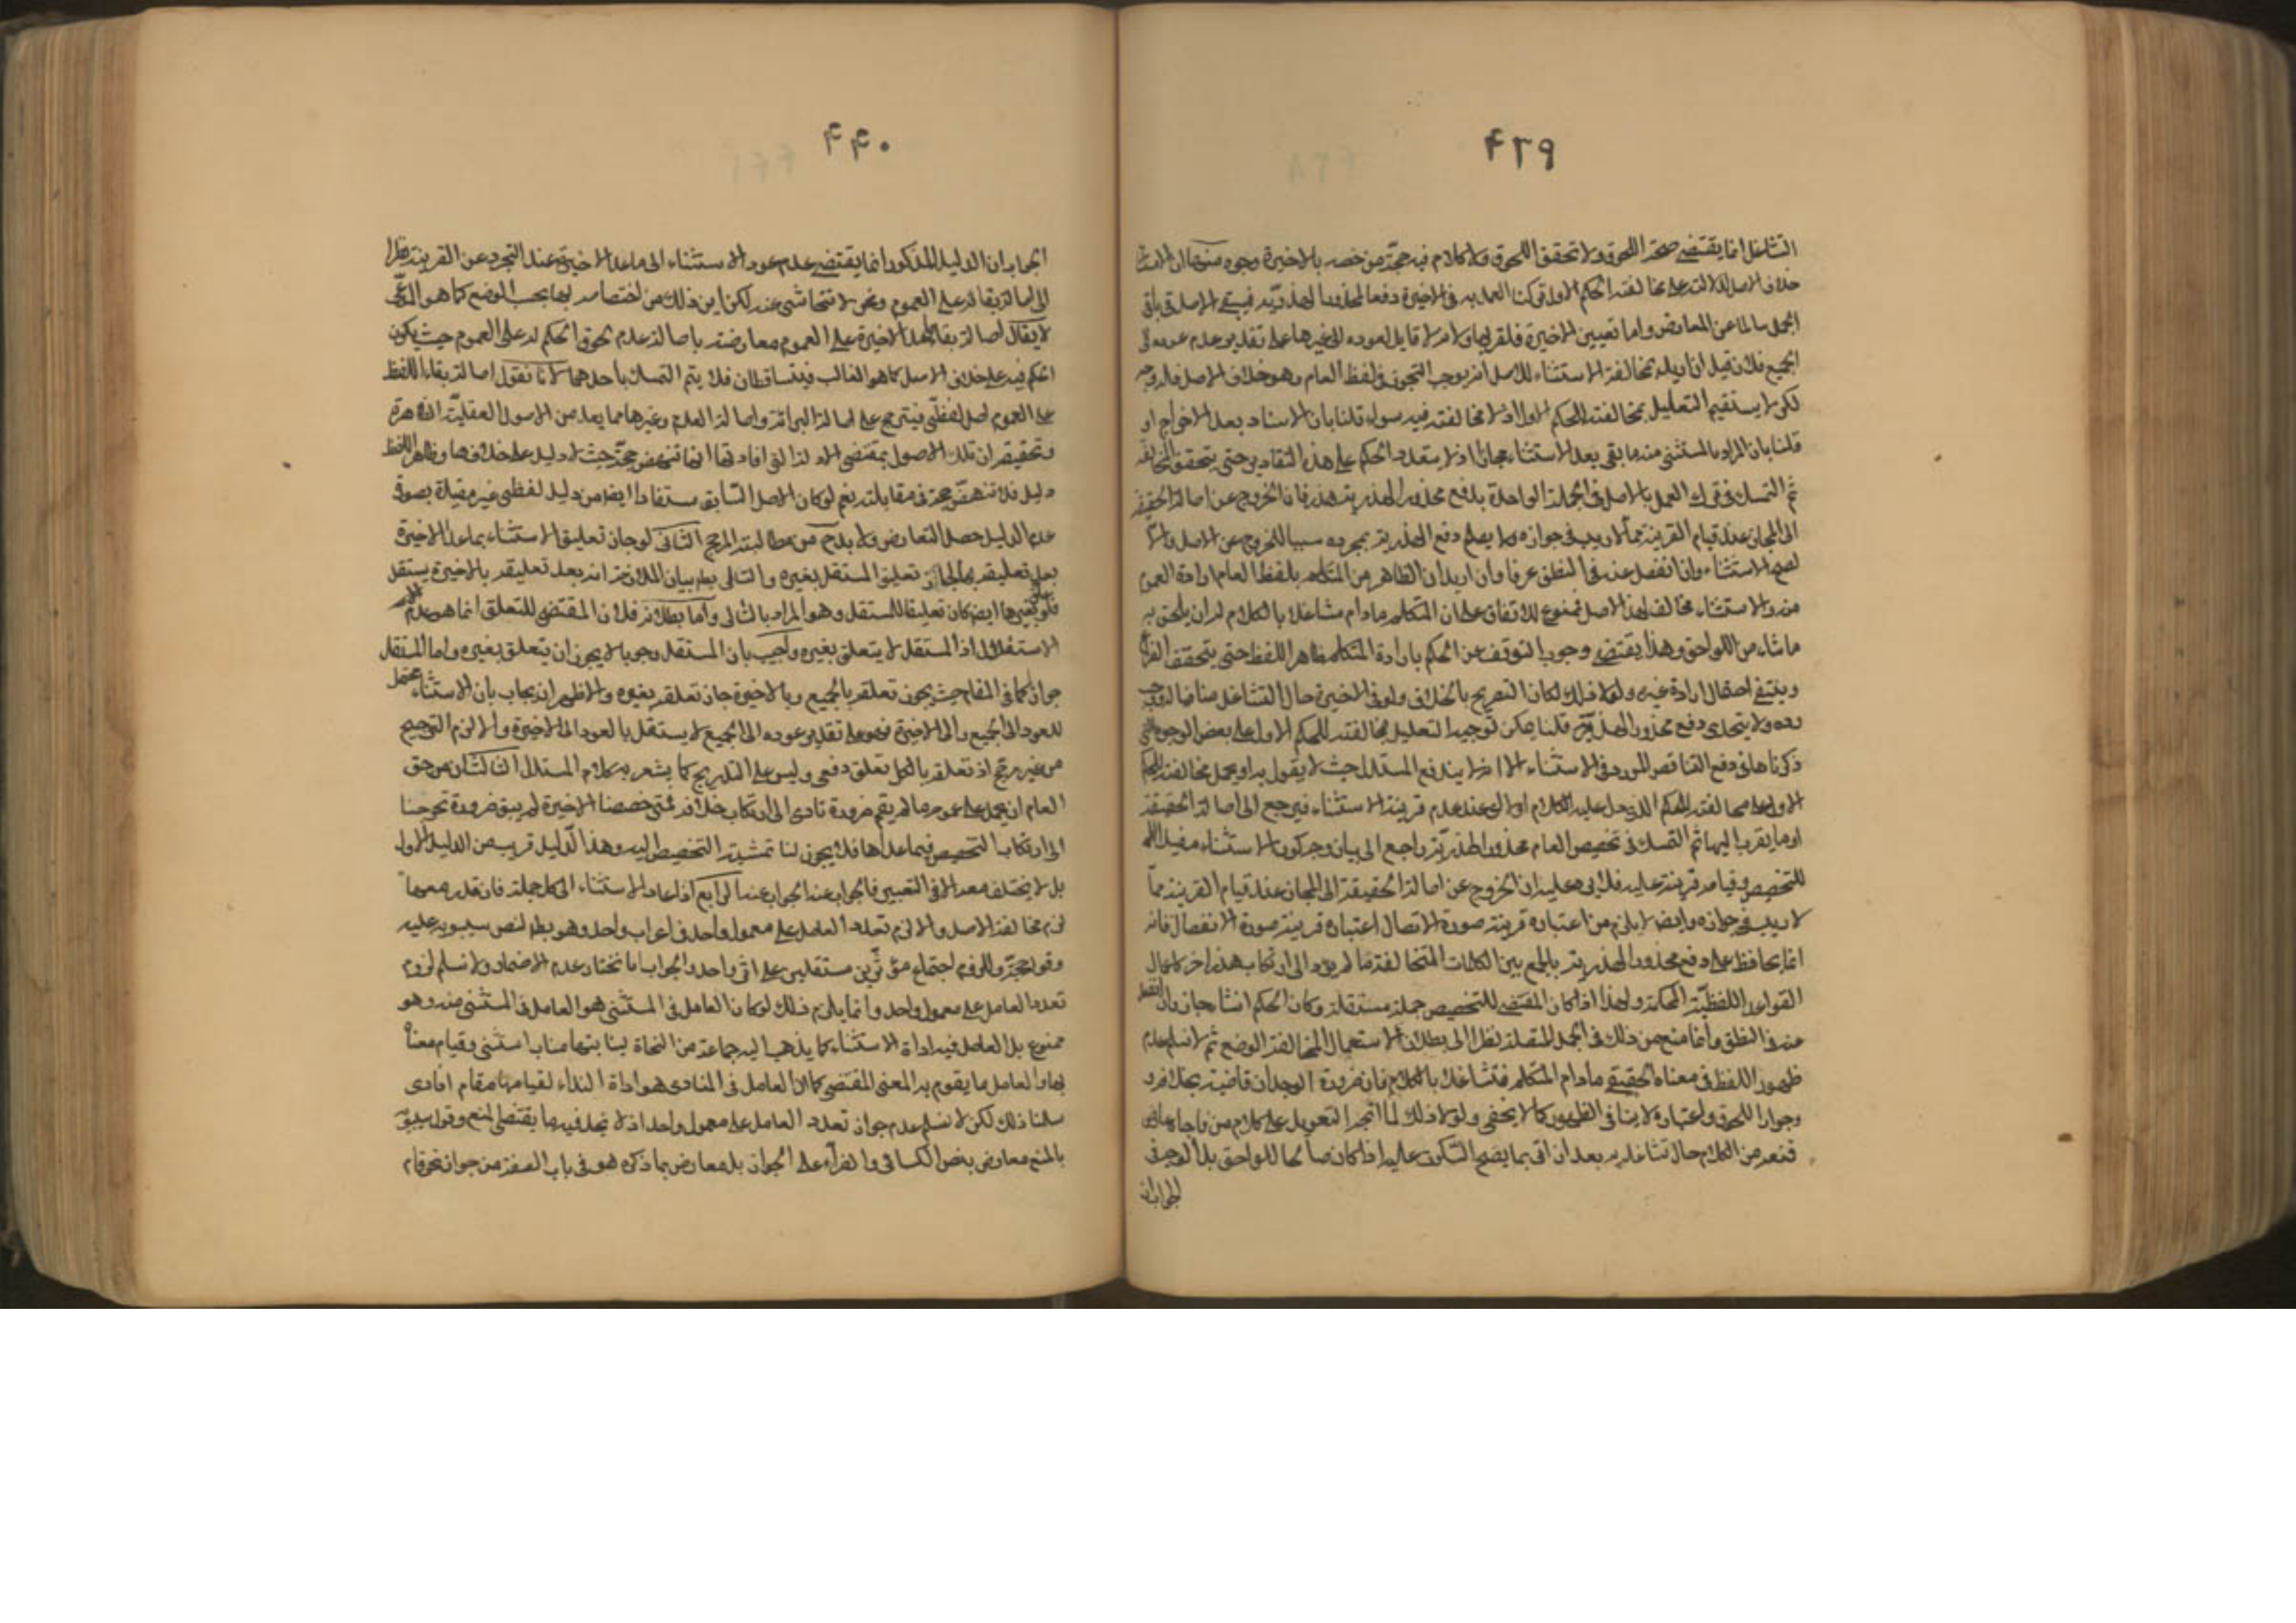 ۴۳۹
التشاغل انما يقتضى صحة اللحوق ولا تحقق اللحوق ولا كلام فيه حجة من خصه بالاخيرة وجوه منها ان الاستثناء
خلاف الاصل لاشتماله على مخالفة الحكم الاول تركنا العمل به فى الاخيرة دفعا لمحذور الهذرية فيبقى الاصل فى باقى
الجمل سالما عن المعارض واما تعيين الاخيرة فلقربها ولانه لا قايل لعوده الى غيرها على تقدير عدم عوده الى
الجميع فلان قيل ان اريد بمخالفة الاستثناء للاصل انه يوجب التجوز فى لفظ العام وهو خلاف الاصل فله وجه
لكن لا يستقيم التعليل بمخالفته للحكم الاول اذ لا مخالفة فيه سواء قلنا بان الاسناد بعد الاخراج او
قلنا بان المراد بالمستثنى منه ما بقى بعد الاستثناء مجازا اذ لا يتعدد الحكم على هذه التقادير حتى يتحقق المخالفة
ثم التمسك فى ترك العمل بالاصل فى الجملة الواحدة بدفع محذور الهذرية هذر فان الخروج عن اصالة الحقيقة
الى المجاز عند قيام القرينة مما لا ريب فى جوازه ولا يصلح دفع الهذرية بمجرده سببا للخروج عن الاصل والا
لصح الاستثناء وان انفصل عنه فى النطق عرفا وان اريد ان الظاهر من المتكلم بلفظ العام ارادة العموم
منه والاستثناء مخالف لهذا الاصل فممنوع للاتفاق على ان المتكلم ما دام متشاغلا بالكلام له ان يلحق به
ما شاء من اللواحق وهذا يقتضى وجوب التوقف عن الحكم بارادة المتكلم ظاهر اللفظ حتى يتحقق الفراغ
وينتفى احتمال ارادة غيره ولولا ذلك لكان التصريح بالخلاف ولو فى الاخيرة حال التشاغل منافيا له فيجب
رده ولا يتجدى دفع محذور الهذرية قلنا يمكن توجيه التعليل بمخالفته للحكم الاول على بعض الوجوه التى
ذكرناها فى دفع التناقض المورد فى الاستثناء الا انه لا يندفع المستدل حيث لا يقول به او يحمل مخالفته للحكم
الاول على مخالفته للحكم الذى حمل عليه الكلام اولا عند عدم قرينة الاستثناء فيرجع الى اصالة الحقيقة
او ما يقرب اليها ثم التمسك فى تخصيص العام بمحذور الهذرية راجع الى بيان وجه كون الاستثناء مفيدا
للتخصيص وقيامه قرينة عليه فلا يرد عليه ان الخروج عن اصالة الحقيقة الى المجاز عند قيام القرينة مما
لا ريب فى جوازه وايضا لا يلزم من اعتباره قرينة صورة الاتصال اعتباره قرينة صورة الانفصال فانه
انما يحافظ على دفع محذور الهذرية بالجمع بين الكلمات المتخالفة ما لم يؤد الى ارتكاب هذر اخر كاهمال
القواعد اللفظية المحكمة ولهذا اذا كان المقتضى للتخصيص جملة مستقلة وكان الحكم انشاء جاز وان انفصل
عنه فى النطق وانما منع من ذلك فى الجمل المتصلة نظرا الى بطلان الاستعمال المخالف الوضع ثم لا نسلم عدم
ظهور اللفظ فى معناه الحقيقى ما دام المتكلم متشاغلا بالكلام فان ضرورة الوجدان قاضية بخلافه
وجواز اللحوق واعتباره لا ينافى الظهور كما لا يخفى ولولا ذلك لما اتجه التعويل على كلام من
منعه من الكلام حال تشاغله به بعد ان اتى بما يصح السكوت عليه اذا كان صالحا للواحق بل الوجه فى
الجواب ان
۴۴۰
الجواب ان الدليل المذكور انما يقتضى عدم عود الاستثناء الى ما عدا الاخيرة عند التجرد عن القرينة نظرا
الى اصالة بقائه على العموم ونحن لا نتحاشى عنه لكن اين ذلك من اختصاصه بها بحسب الوضع كما هو المدعى
لا يقال اصالة بقاء ما عدا الاخيرة على العموم معارضة باصالة عدم لحوق الحكم له على العموم حيث يكون
الحكم فيه على خلاف الاصل كما هو الغالب فيتساقطان فلا يتم التمسك باحدهما لانا نقول اصالة بقاء اللفظ
على العموم اصل لفظى فيترجح على اصالة البرائة واصالة العدم وغيرهما مما يعد من الاصول العقلية الظاهرة
وتحقيقه ان تلك الاصول بمقتضى الادلة التى افادتها انما تنهض حجة حيث لا دليل على خلافها وظاهر اللفظ
دليل فلا تنهض حجة فى مقابلته نعم لو كان الاصل السابق مستفادا ايضا من دليل لفظى غير مقيد بصورة
عدم الدليل حصل التعارض ولا بد ح من مطالبة المرجح الثانى لو جاز تعليق الاستثناء بما عدا الاخيرة
بعد تعليقه بها لجاز تعليق المستقل بغيره والتالى بط بيان الملازمة انه بعد تعليقه بالاخيرة يستقل
فلو تعلق بغيرها ايضا كان تعليقا للمستقل وهو المراد بالتالى واما بطلانه فلان المقتضى للتعلق انما هو عدم
الاستقلال اذ المستقل لا يتعلق بغيره واجيب بان المستقل وجوبا لا يجوز ان يتعلق بغيره واما المستقل
جوازا كما فى المقام حيث يجوز تعلقه بالجميع وبالاخيرة جاز تعلقه بغيره والاظهر ان يجاب بان الاستثناء محتمل
للعود الى الجميع والى الاخيرة فهو على تقدير عوده الى الجميع لا يستقل بالعود الى الاخيرة والا لزم الترجيح
من غير مرجح اذ تعلقه بالكل تعلق دفعى وليس على التدريج كما يشعر به كلام المستدل الثالث ان من حق
العام ان يحمل على عمومه ما لم يقم ضرورة تادى الى ارتكاب خلافه فمتى خصصنا الاخيرة لم يبق ضرورة تحوجنا
الى ارتكاب التخصيص فيما عداها فلا يجوز لنا تمشية التخصيص اليه وهذا الدليل قريب من الدليل الاول
بل لا يختلف معه الا فى التعبير فالجواب عنه الجواب عنه الرابع اذا عاد الاستثناء الى كل جملة فان قدر معها
لزم مخالفة الاصل والا لزم تعدد العامل على معمول واحد فى اعراب واحد وهو بط لنص سيبويه عليه
وقوله حجة وللزوم اجتماع مؤثرين مستقلين على اثر واحد والجواب انا نختار عدم الاضمار ولا نسلم لزوم
تعدد العامل على معمول واحد وانما يلزم ذلك لو كان العامل فى المستثنى هو العامل فى المستثنى منه وهو
ممنوع بل العامل فيه اداة الاستثناء كما يذهب اليه جماعة من النحاة لنيابتها مناب استثنى وقيام معناه
بها والعامل ما يقوم به المعنى المقتضى كما ان العامل فى المنادى هو اداة النداء لقيامها مقام انادى
سلمنا ذلك لكن لا نسلم عدم جواز تعدد العامل على معمول واحد اذ لا نجد فيه ما يقتضى المنع وقول سيبويه
بالمنع معارض بنص الكسائى والفراء على الجواز بل معارض بما ذكره هو فى باب الصفة من جواز نحو قام